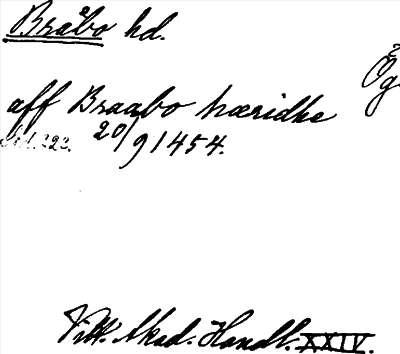 Bråbo hd.
Ög
aff Braabo hæridhe
Sid. 222. 20/9 1454.
Vitt. Akad. Handl. XXIV.